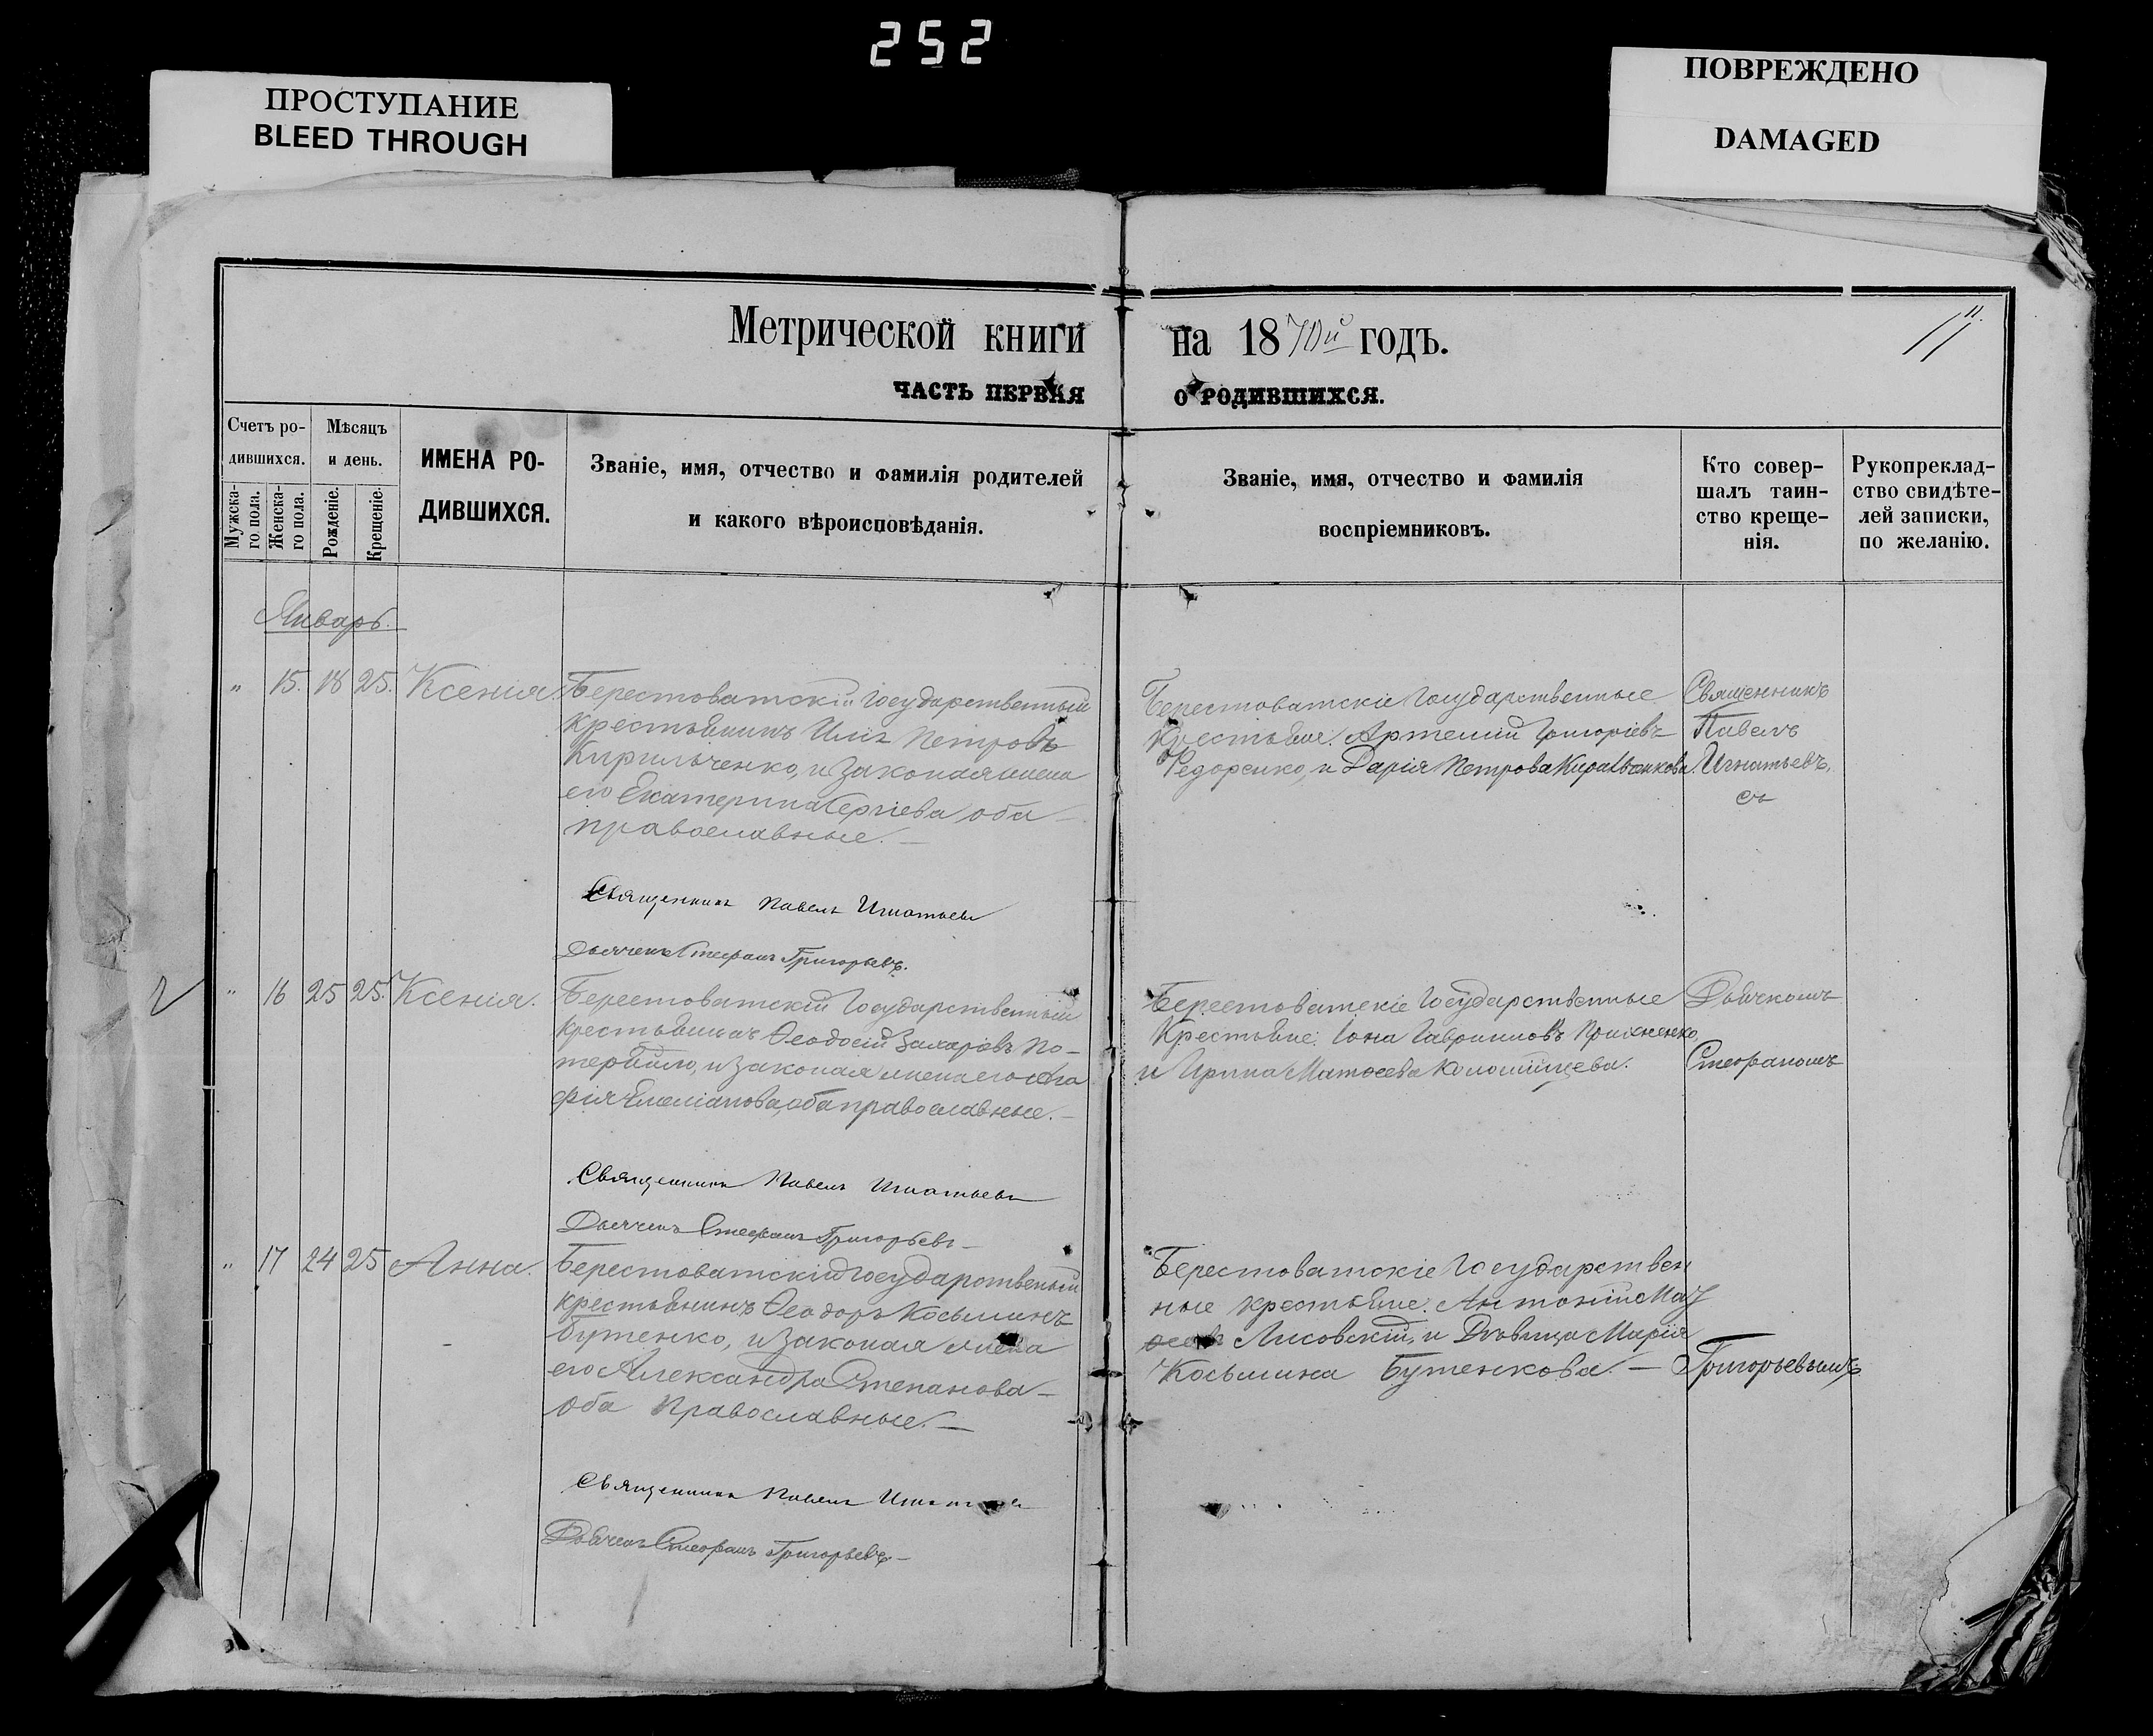 252
ПРОСТУПАНИЕ
BLEED THROUGH
ПОВРЕЖДЕНО
DAMAGED
Метрической книги на 1870й годъ.
11
ЧАСТЬ ПЕРВАЯ О РОДИВШИХСЯ.
Счетъ ро-
дившихся.
Мужска-
го пола.
Женска-
го пола.
Мѣсяцъ
и день.
Рожденіе.
Крещеніе.
ИМЕНА РО-
ДИВШИХСЯ.
Званіе, имя, отчество и фамилія родителей
и какого вѣроисповѣданія.
Званіе, имя, отчество и фамилія
воспріемниковъ.
Кто совер-
шалъ таин-
ство креще-
нія.
Рукоприклад-
ство свидѣте-
лей записки,
по желанію.
Январь.
" 15. 18 25. Ксенія.
Берестоватскій Государственный
крестьянинъ Илія Петровъ
Кирильченко, и законная жена
его Екатерина Сергіева оба
православные.
Священникъ Павелъ Игнатьевъ
Дьячекъ Стефанъ Григорьевъ.
Берестоватскіе Государственные
Крестьяне: Артемій Григоріевъ
Федоренко, и Дарія Петрова
Священникъ
Павелъ
Игнатьевъ,
съ
" 16 25 25. Ксенія.
Берестоватскій Государственный
крестьянинъ Ѳеодосій Захаровъ По-
и законная жена его Ага
фія Емеліанова, оба православные.
Священникъ Павелъ Игнатьевъ
Дьячекъ Стефанъ Григорьевъ
Берестоватскіе Государственные
Крестьяне: Іона Гавриловъ
и Ирина Матѳеева
Дьячкомъ
Стефаномъ
" 17 24 25 Анна.
Берестоватскій Государственый
крестьянинъ Ѳеодоръ Косьминъ
Бутенко, и законая жена
его Александра Степанова
оба Православные.
Священникъ Павелъ
Дьячекъ Стефанъ Григорьевъ
Берестоватскіе Государствен
ные крестьяне: Антоній
Лисовскій, и Дѣвица Марія
Косьмина Бутенкова.
Григорьевымъ